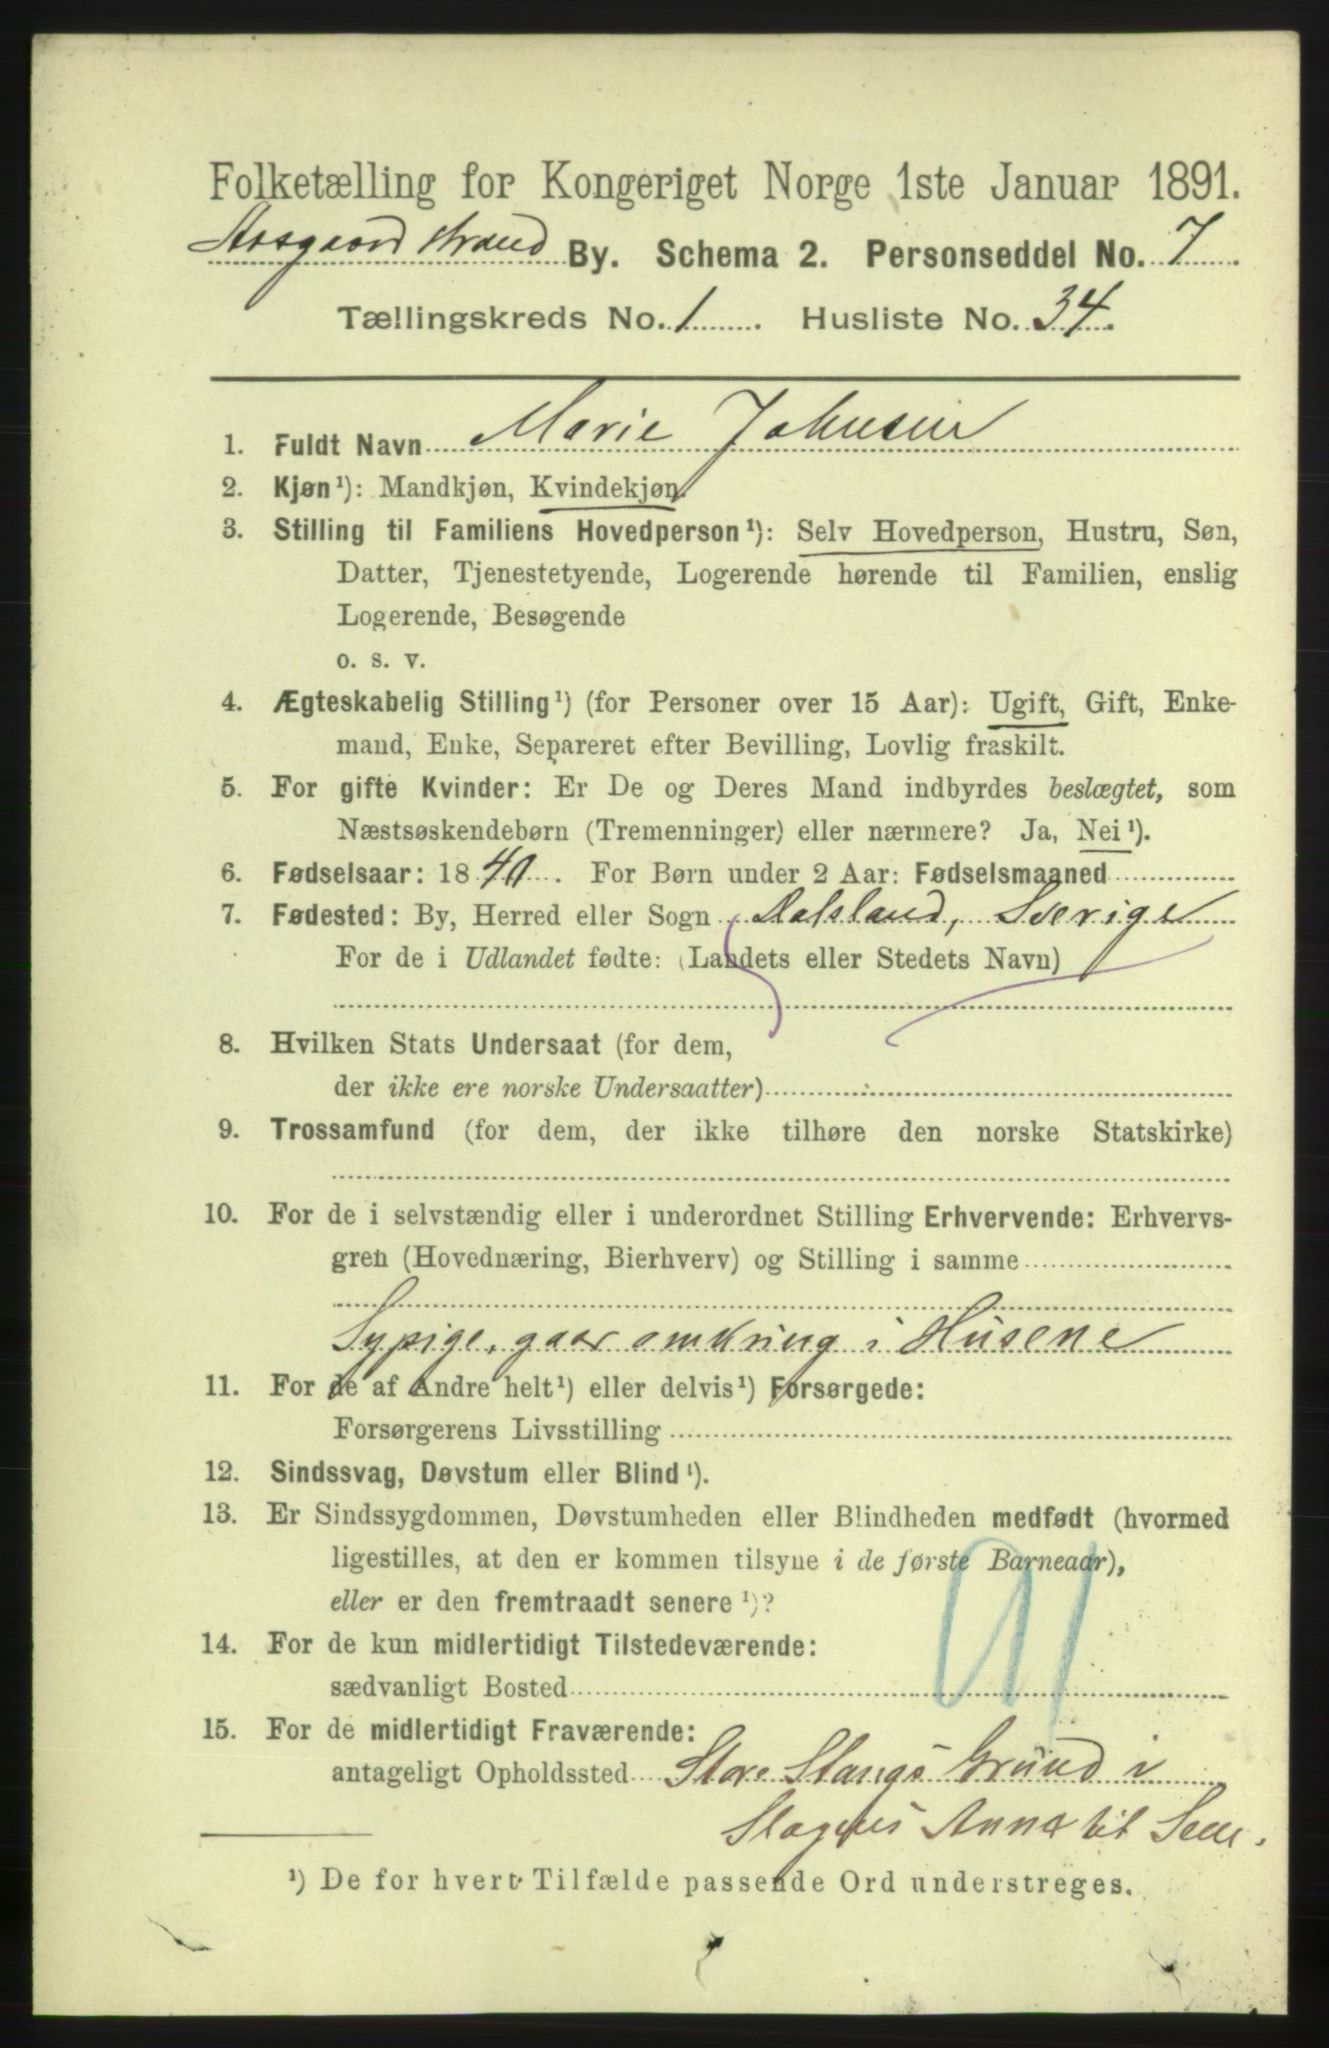 Folketælling for Kongeriget Norge 1ste Januar 1891.
Aasgaardstrand By. Schema 2. Personseddel No. 7
Tællingskreds No. 1 Husliste No. 34.
1. Fuldt Navn Marie Johnsen
2. Kjøn¹): Mandkjøn, Kvindekjøn.
3. Stilling til Familiens Hovedperson¹): Selv Hovedperson, Hustru, Søn,
Datter, Tjenestetyende, Logerende hørende til Familien, enslig
Logerende, Besøgende
o. s. v.
4. Ægteskabelig Stilling¹) (for Personer over 15 Aar): Ugift, Gift, Enke-
mand, Enke, Separeret efter Bevilling, Lovlig fraskilt.
5. For gifte Kvinder: Er De og Deres Mand indbyrdes beslægtet, som
Næstsøskendebørn (Tremenninger) eller nærmere? Ja, Nei¹).
6. Fødselsaar: 1840. For Børn under 2 Aar: Fødselsmaaned
7. Fødested: By, Herred eller Sogn Dalsland, Sverige
For de i Udlandet fødte: (Landets eller Stedets Navn)
8. Hvilken Stats Undersaat (for dem,
der ikke ere norske Undersaatter)
9. Trossamfund (for dem, der ikke tilhøre den norske Statskirke)
10. For de i selvstændig eller i underordnet Stilling Erhvervende: Erhvervs-
gren (Hovednæring, Bierhverv) og Stilling i samme
Sypige, gaar omkring i Husene
11. For de af Andre helt¹) eller delvis¹) Forsørgede:
Forsørgerens Livsstilling
12. Sindssvag, Døvstum eller Blind¹).
13. Er Sindssygdommen, Døvstumheden eller Blindheden medfødt (hvormed
ligestilles, at den er kommen tilsyne i de første Barneaar),
eller er den fremtraadt senere¹)?
14. For de kun midlertidigt Tilstedeværende:
sædvanligt Bosted
15. For de midlertidigt Fraværende:
antageligt Opholdssted Store Stangs Grund i
Slagens Annex til Sem.
¹) De for hvert Tilfælde passende Ord understreges.